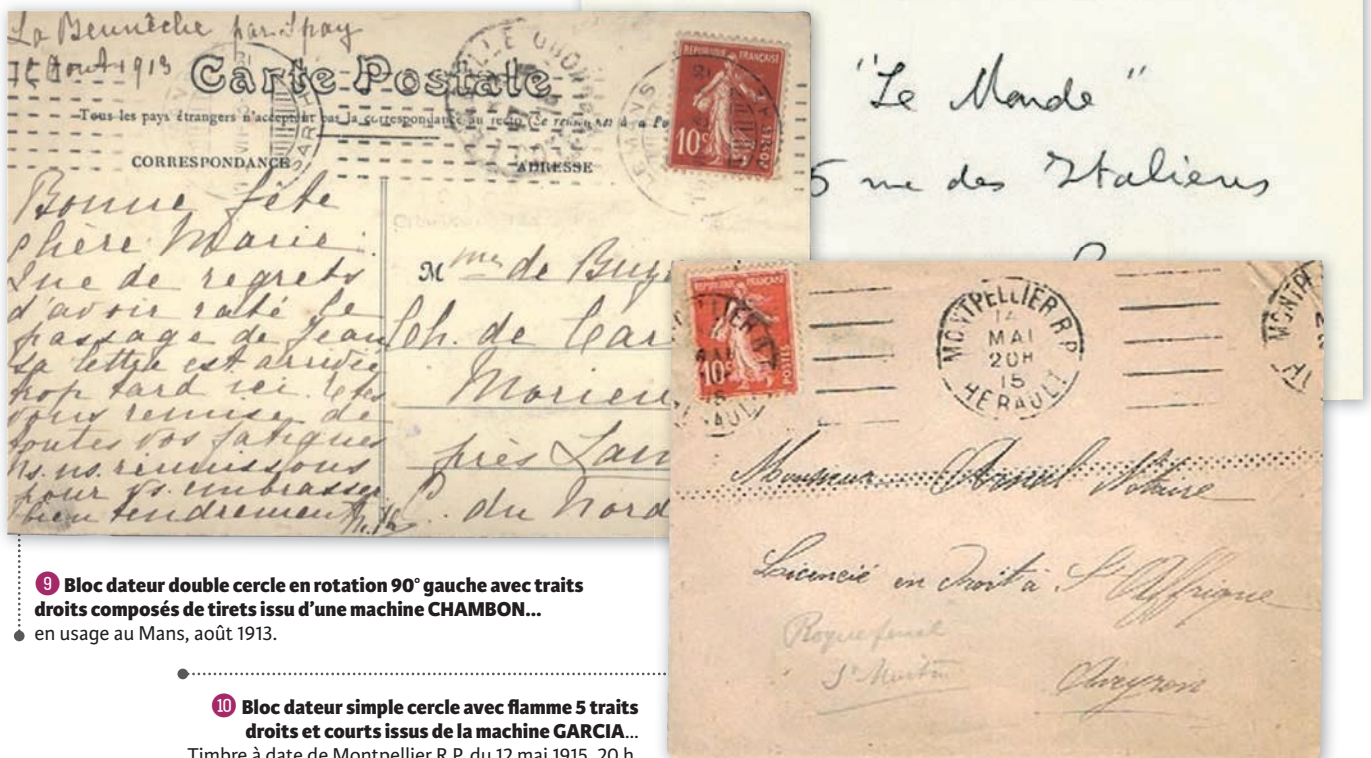 La Beunêche par Spay
Août 1913
Carte Postale
Tous les pays étrangers n'acceptent pas la correspondance au recto (Se
CORRESPONDANCE
ADRESSE
LE MANS
SARTHE
REPUBLIQUE FRANÇAISE
10c
POSTES
Bonne fête
chère Marie.
Que de regrets
d'avoir raté le
passage de Jean
sa lettre est arrivée
trop tard ici. Etes
vous remise de
toutes vos fatigues
Ns. ns. réunissons
pour vs. embrasser
bien tendrement
M me de
Ch. de Car
Morieu
près Lam
C. du Nord
"Le Monde"
5 rue des Italiens
REPUBLIQUE FRANÇAISE
10c
POSTES
MONTPELLIER R.P
14
MAI
20H
15
HERAULT
MONTP
Monsieur Arnal Notaire
Licencié en Droit à St Affrique
Roquefeuil
St Martin
Aveyron
9 Bloc dateur double cercle en rotation 90° gauche avec traits
droits composés de tirets issu d'une machine CHAMBON...
en usage au Mans, août 1913.
10 Bloc dateur simple cercle avec flamme 5 traits
droits et courts issus de la machine GARCIA...
Timbre à date de Montpellier R.P. du 12 mai 1915, 20 h.